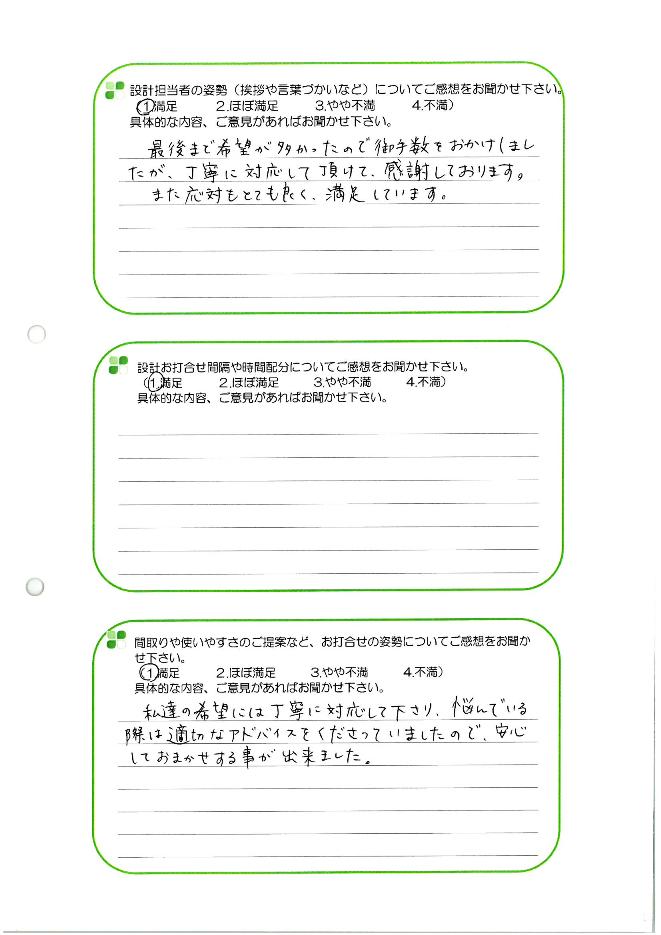 設計担当者の姿勢（挨拶や言葉づかいなど）についてご感想をお聞かせ下さい。
（1.満足　2.ほぼ満足　3.やや不満　4.不満）
具体的な内容、ご意見があればお聞かせ下さい。
最後まで希望が多かったので御手数をおかけしまし
たが、丁寧に対応して頂けて、感謝しております。
また応対もとても良く、満足しています。
設計お打合せ間隔や時間配分についてご感想をお聞かせ下さい。
（1.満足　2.ほぼ満足　3.やや不満　4.不満）
具体的な内容、ご意見があればお聞かせ下さい。
間取りや使いやすさのご提案など、お打合せの姿勢についてご感想をお聞か
せ下さい。
（1.満足　2.ほぼ満足　3.やや不満　4.不満）
具体的な内容、ご意見があればお聞かせ下さい。
私達の希望には丁寧に対応して下さり、悩んでいる
際は適切なアドバイスをくださっていましたので、安心
しておまかせする事が出来ました。